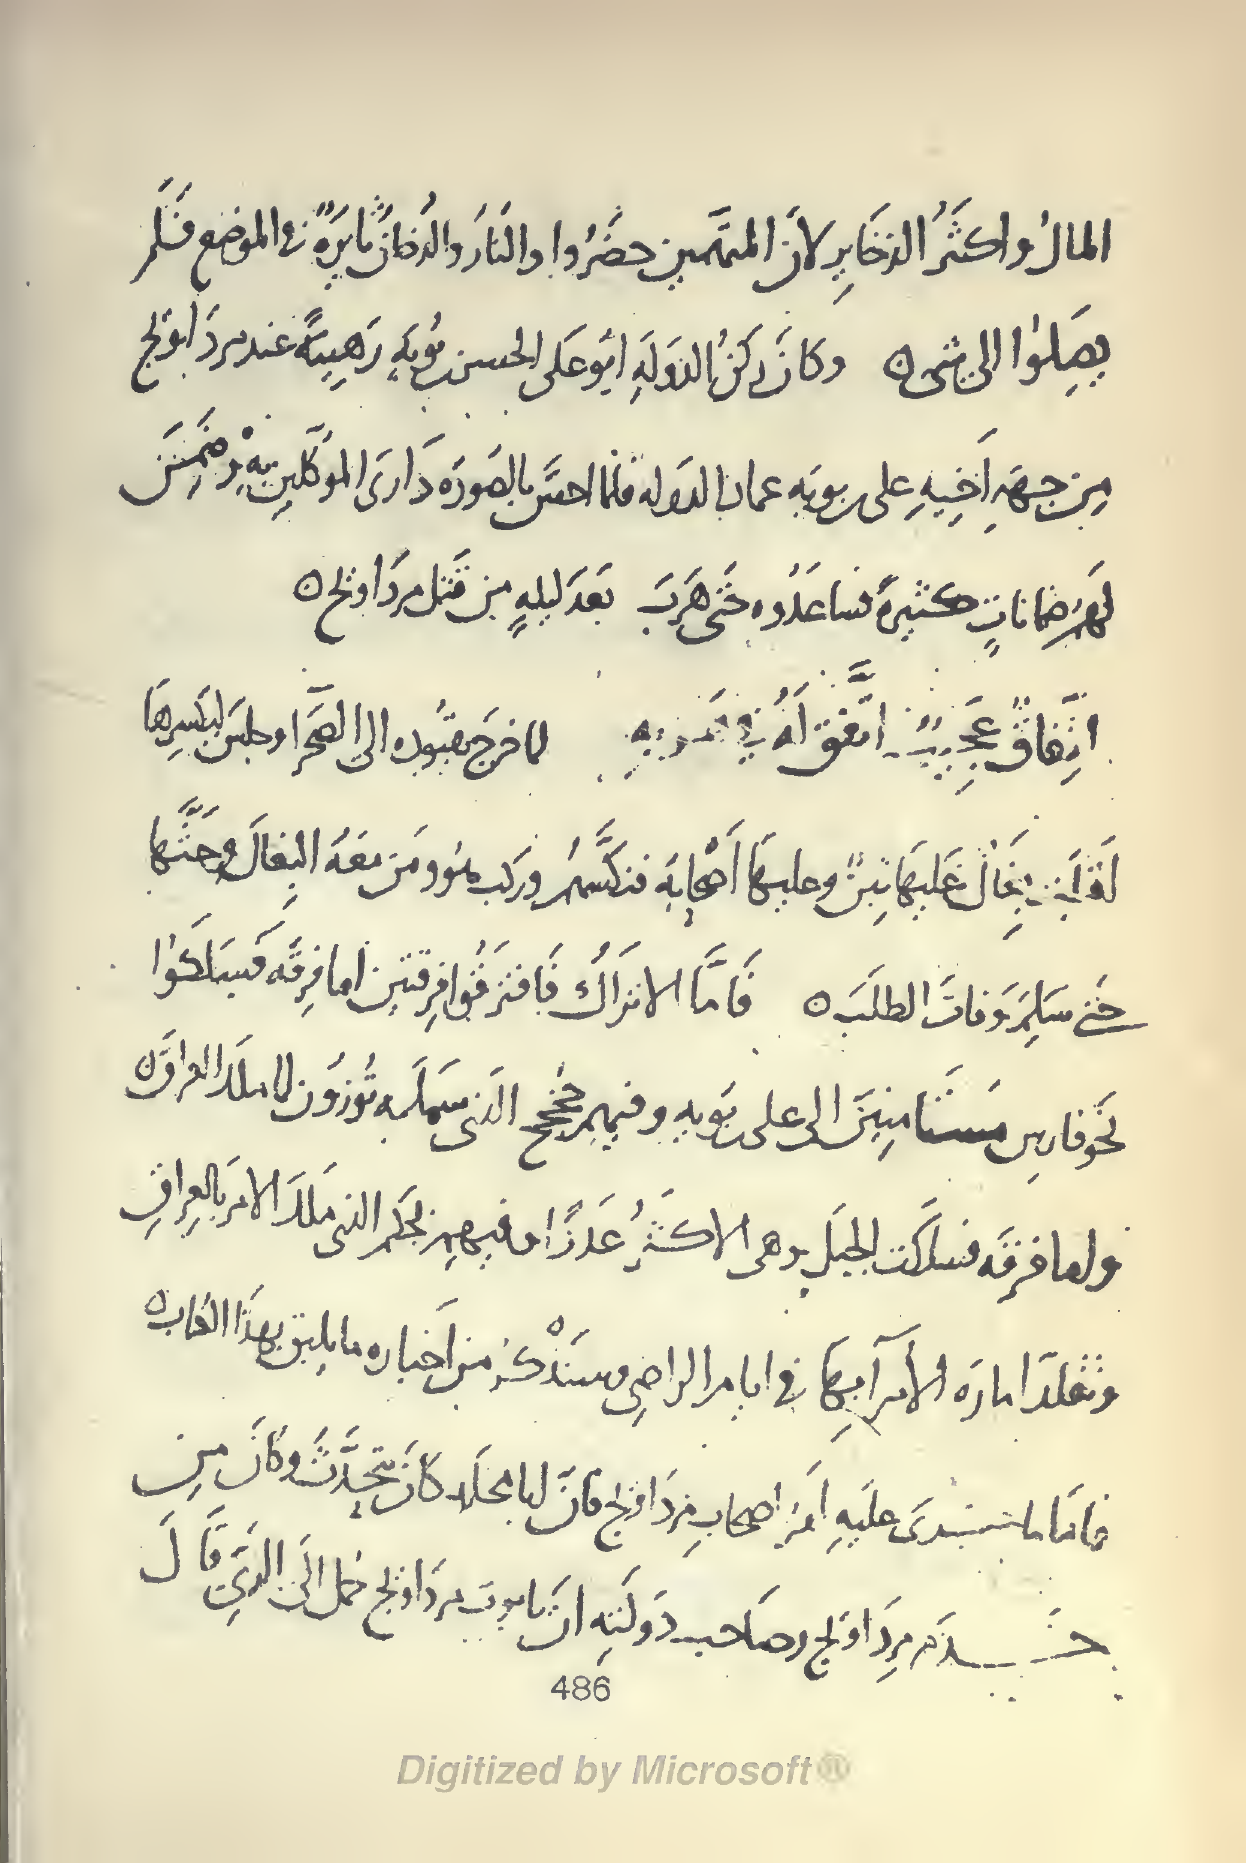 المالُ واكثَرُ الذخَايِرِ لانّ المتهّمين حضَرُوا والنَارُ والدُخانُ ثايرَةٌ في الموضع فَلَم
يصِلوُا الى شى ه وكانَ ركنُ الدَولَهِ ابُو على الحسن بن بُويَه رَهِينَةً عند مردَاويج
مِن جهَهِ اَخِيهِ على بن بويَه عماد الدَوله فلما احسَّ بالصَورَه دَارىَ الموَكّلين بِهِ وضَمِنَ
لَهمُ ضماناتٍ كثيرةً فساعَدُوه حَتى هَرَبَ بَعدَ ليلهٍ من قَتل مردَاويج ه
اتِفاقٌ عَجِيبٌ اتّفق لَهُ في هَرَبِهِ لما خرجَ بقيُوده الى الصَّحرا وجلسَ ليَكسِرهَا
اَقبلَت بِغَالٌ عَليهَا تِبنٌ وعليهَا اَصْحابه فنكسَّهُم وركب هُو ومَن معَهُ البِغالَ وحَثَّها
حَتى سَلِمَ وَفاتَ الطلَبَ ه فَامَّا الاتراكُ فَافتَرقُوا فِرقتَين اما فِرقَه فَسَلكَوُا
نَحَو فارس مُستَامِنِينَ الى على بن بَويهِ وفيهِم خُجخُج الذى سَملَه تُوزوُن لما ملك العراقَ ه
واما فرقَه فسلَكَت الجبَل وهى الاكثَرُ عَددًا وفيهِم بَجكَم الذى مَلَكَ الامرَ بالعِراقِ
وتَقلّدَ امارَه الأمرآ بهَا فى ايام الراضِى وسنَذْكرُ من اَخبارِه ما يليق بهَذا الكتاب ه
فامّا ما عَليَهِ اَمرُ اصحابِ مردَاويج فانّ ابا مخلَد كانَ يتحَدَّثَ وكانَ مِن
خَدَمِ مردَاويج وصَاحب دَولَتِه انّ تابوتَ مردَاويج حُمِل الَى الرّيَ قَالَ
486
Digitized by Microsoft®